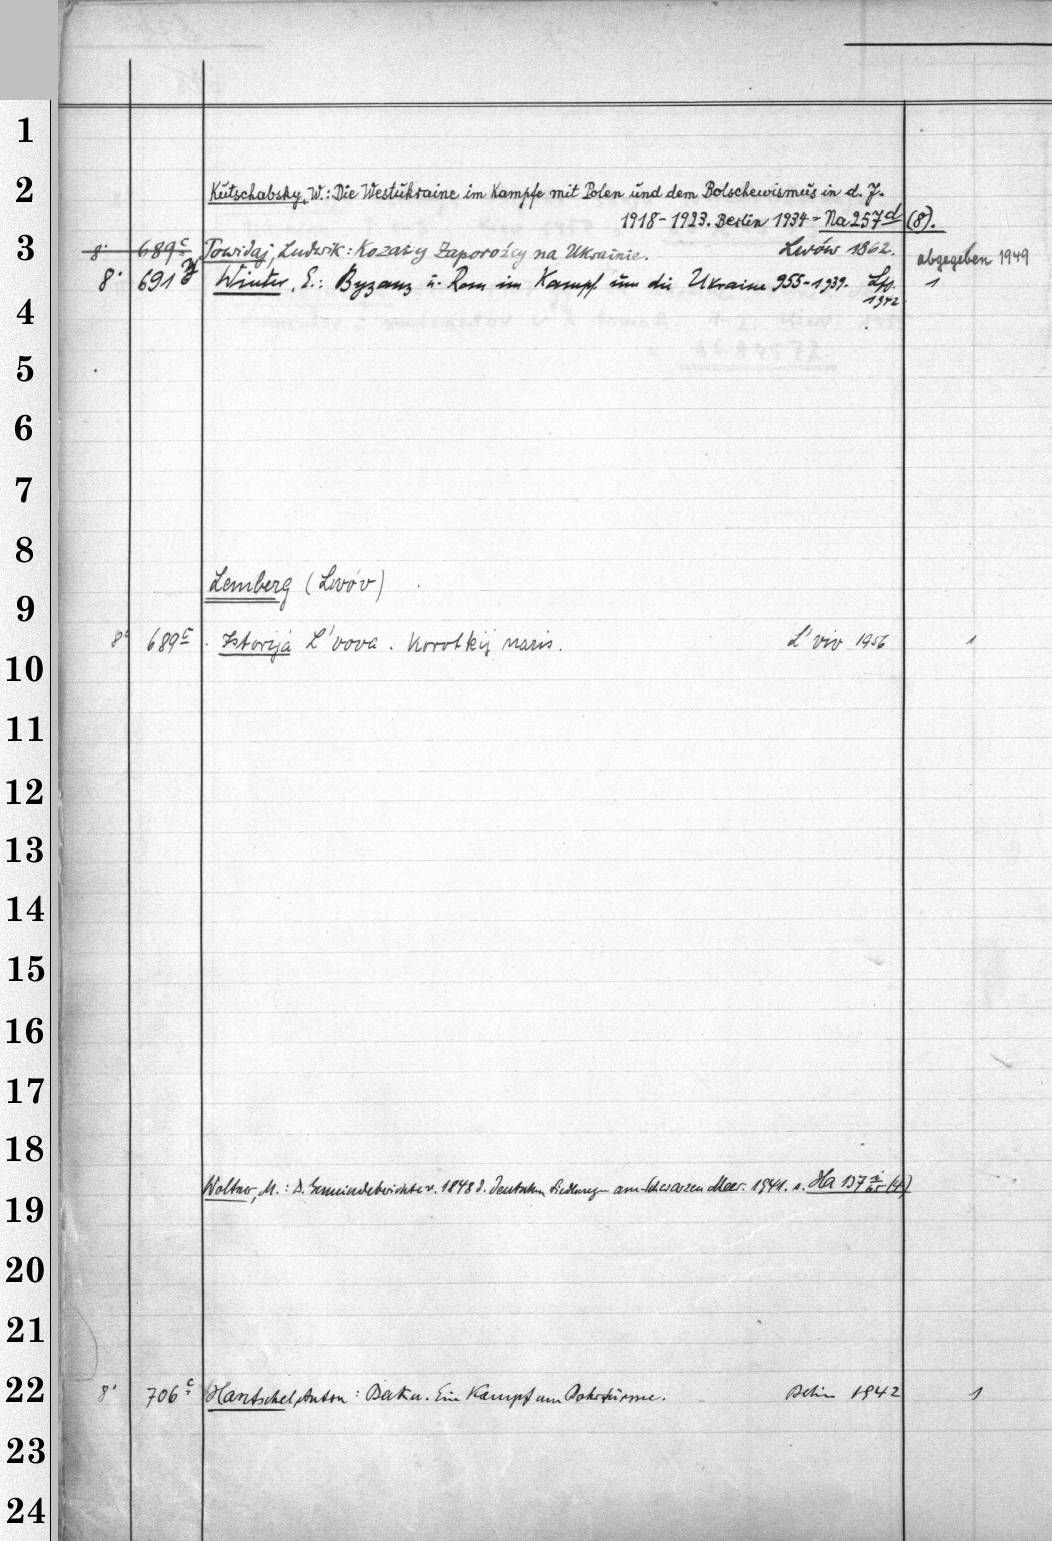 1
2
Kutschabsky, W.: Die Westukraine im Kampfe mit Polen und dem Bolschewismus in d. J.
1918-1923. Berlin 1934 = Na 257d (8).
3
8° 689c Towidaj, Ludwik: Kozacy Zaporożcy na Ukrainie. Lwów 1862. abgegeben 1949
8° 691 y Winter, E.: Byzanz u. Rom im Kampf um die Ukraine 955-1939. Lpz. 1
1942
4
5
6
7
8
Lemberg (Lwóv)
9
8° 689c Istorija L'vova. Korotkij naris. L'viv 1956 1
10
11
12
13
14
15
16
17
18
Woltner, M.: D. Gemeindeberichte v. 1848 d. deutschen Siedlungen am Schwarzen Meer. 1941. s. Ha 137 (4)
19
20
21
22
8° 706c Hantschel, Anton: Baku. Ein Kampf um Bohrtürme. Berlin 1942 1
23
24